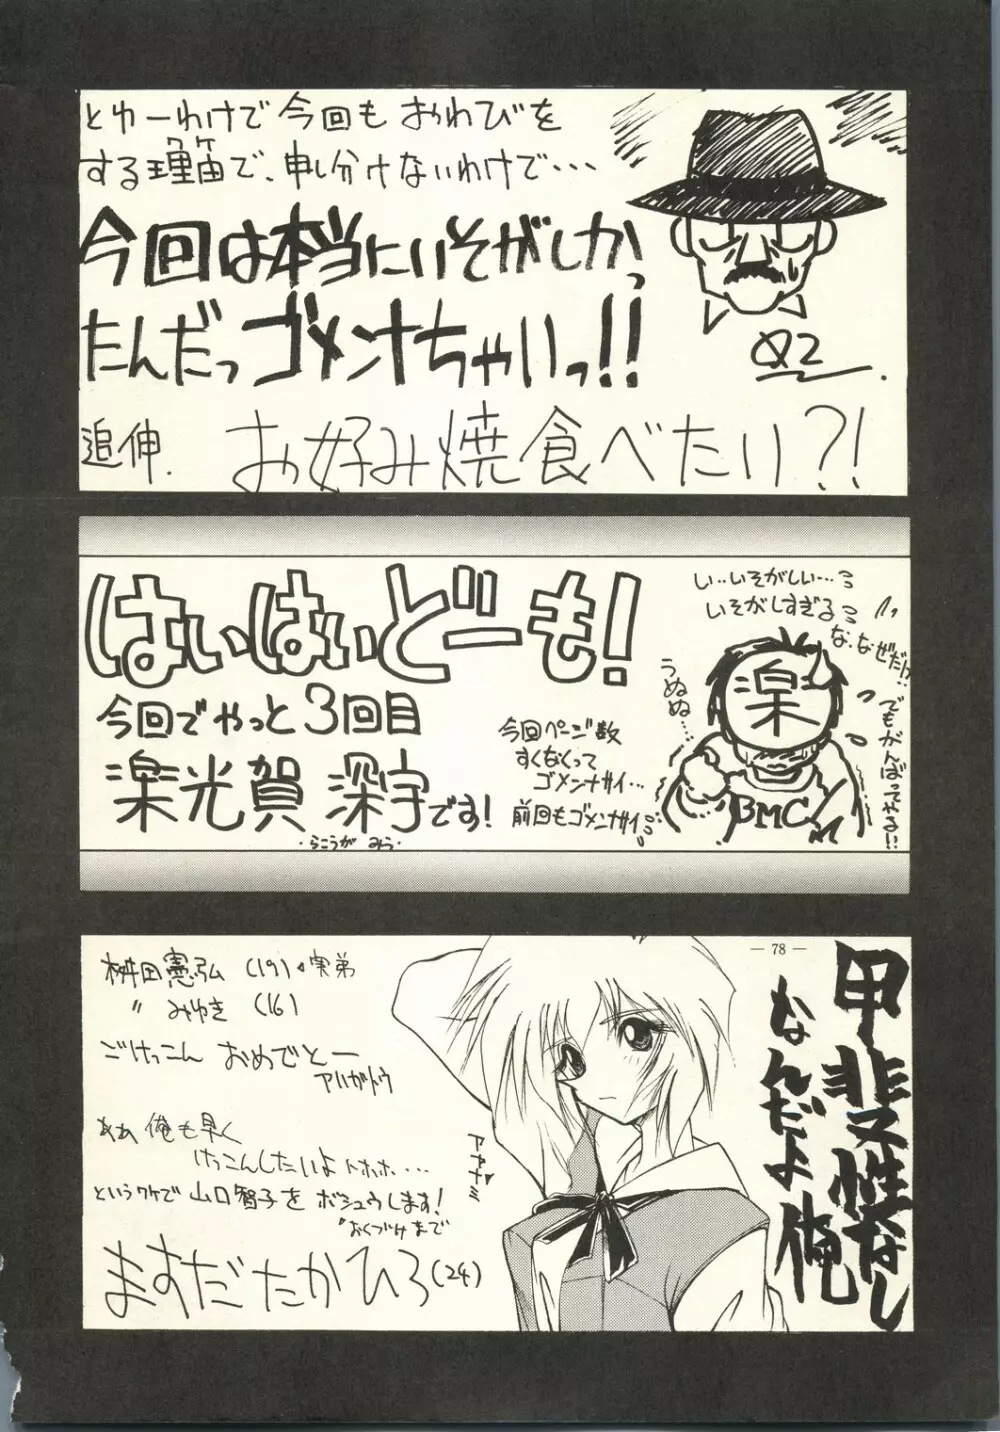 とゆーわけで今回もおわびを
する理由で、申し分けないわけで・・・
ワケ
今回は本当にいそがしかっ
たんだっゴメンナちゃいっ!!
追伸. お好み焼食べたい?!
はいはいどーも!
今回でやっと3回目
楽光賀 深宇です!
・らこうが みう・
今回ページ数
すくなくって
ゴメンナサイ…
前回もゴメンナサイ
い‥いそがしい…
いそがしすぎる
な、なぜだ!?
でもがんばってやる!!
うぬぬ…
楽
BMC
桝田憲弘 (19)・実弟
〃 みゆき (16)
ごけっこん おめでとー
アリガトウ
ああ 俺も早く
けっこんしたいよ トホホ・・・
というワケで 山口智子を ボシュウします!
おくづけまで
ますだたかひろ(24)
アヤナミ
— 78 —
甲斐性なし
なんだよ俺